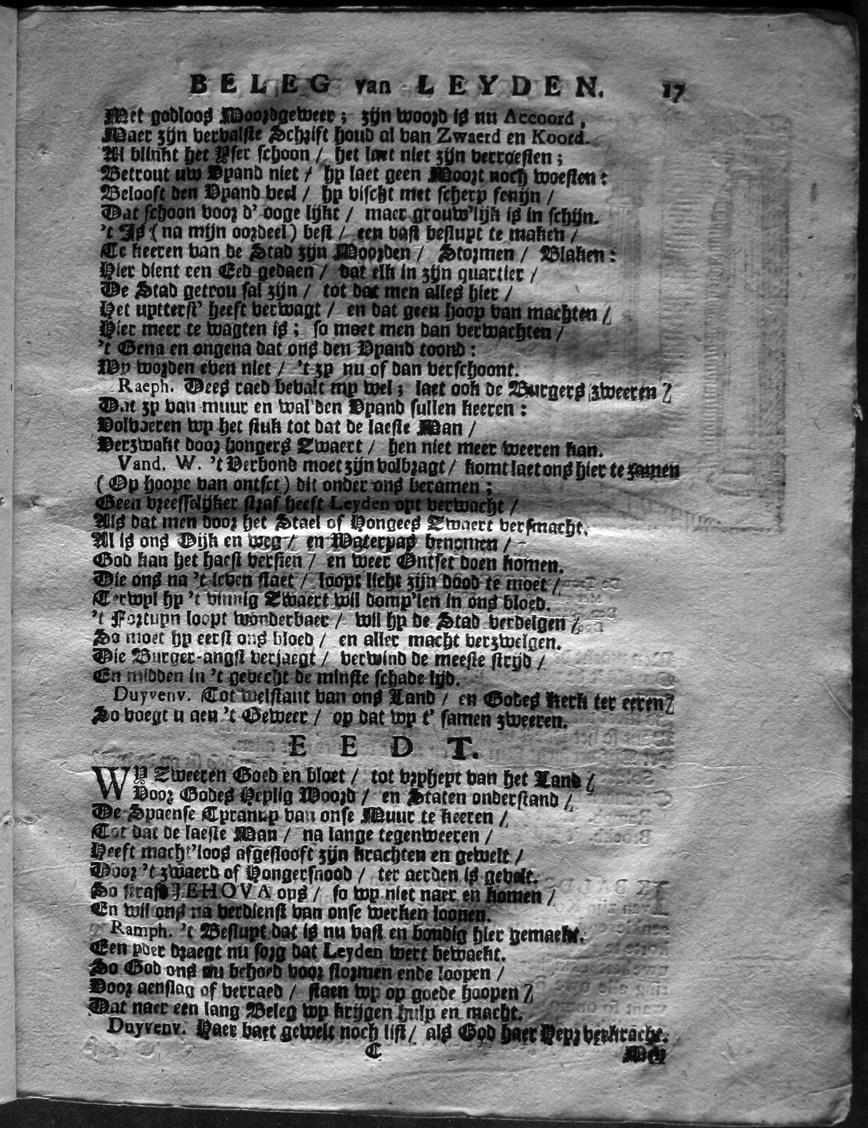 BELEG van LEYDEN. 17
Met godloos Moordgeweer; zijn woord is nu Accoord,
Maer zijn vervalste Schrift houd al van Zwaerd en Koord.
Al blinkt het Yser schoon / het laet niet zijn verroesten;
Betrout uw Vyand niet / hy laet geen Moort noch woesten:
Belooft den Vyand veel / hy vischt met scherp fenijn /
Dat schoon voor d' ooge lijkt / maer grouw'lijk is in schijn.
't Is (na mijn oordeel) best / een vast besluyt te maken /
Te keeren van de Stad zijn Moorden / Stormen / Blaken:
Hier dient een Eed gedaen / dat elk in zijn quartier /
De Stad getrou sal zijn / tot dat men alles hier /
Het uytterst' heeft verwagt / en dat geen hoop van machten /
Hier meer te wagten is; so moet men dan verwachten /
't Gena en ongena dat ons den Vyand toond:
Wy worden even niet / 't zy nu of dan verschoont.
Raeph. Dees raed bevalt my wel; laet ook de Burgers zweeren /
Dat zy van muur en wal den Vyand sullen keeren:
Volvoeren wy het stuk tot dat de laeste Man /
Verzwakt door hongers Zwaert / hen niet meer weeren kan.
Vand. W. 't Verbond moet zijn volbragt / komt laet ons hier te zamen
(Op hoope van ontset) dit onder ons beramen;
Geen vreesselijker straf heeft Leyden oyt verwacht /
Als dat men door het Stael of Hongers Zwaert versmacht.
Al is ons Dijk en weg / en Waterpas benomen /
God kan het haest versien / en weer Ontset doen komen.
Die ons na 't leven staet / loopt licht zijn dood te moet /
Terwyl hy 't vinnig Zwaert wil domp'len in ons bloed.
't Fortuyn loopt wonderbaer / wil hy de Stad verdelgen /
So moet hy eerst ons bloed / en aller macht verzwelgen.
Die Burger-angst verjaegt / verwind de meeste strijd /
En midden in 't gevecht de minste schade lijd.
Duyvenv. Tot welstant van ons Land / en Godes Kerk ter eeren /
So voegt u aen 't Geweer / op dat wy t' samen zweeren.
EEDT.
WY Zweeren Goed en bloet / tot vryheyt van het Land /
Voor Godes Heylig Woord / en Staten onderstand /
De Spaense Tyranny van onse Muur te keeren /
Tot dat de laeste Man / na lange tegenweeren /
Heeft macht'loos afgeslooft zijn krachten en gewelt /
Door 't zwaerd of Hongersnood / ter aerden is gevelt.
So straft JEHOVA ons / so wy niet naer en komen /
En wil ons na verdienst van onse werken loonen.
Ramph. 't Besluyt dat is nu vast en bondig hier gemaekt.
Een yder draegt nu sorg dat Leyden wert bewaekt.
So God ons nu behoed voor stormen ende loopen /
Voor aenslag of verraed / staen wy op goede hoopen /
Dat naer een lang Beleg wy krijgen hulp en macht.
Duyvenv. Naer baet gewelt noch list / als God haer Heyr verkracht.
C